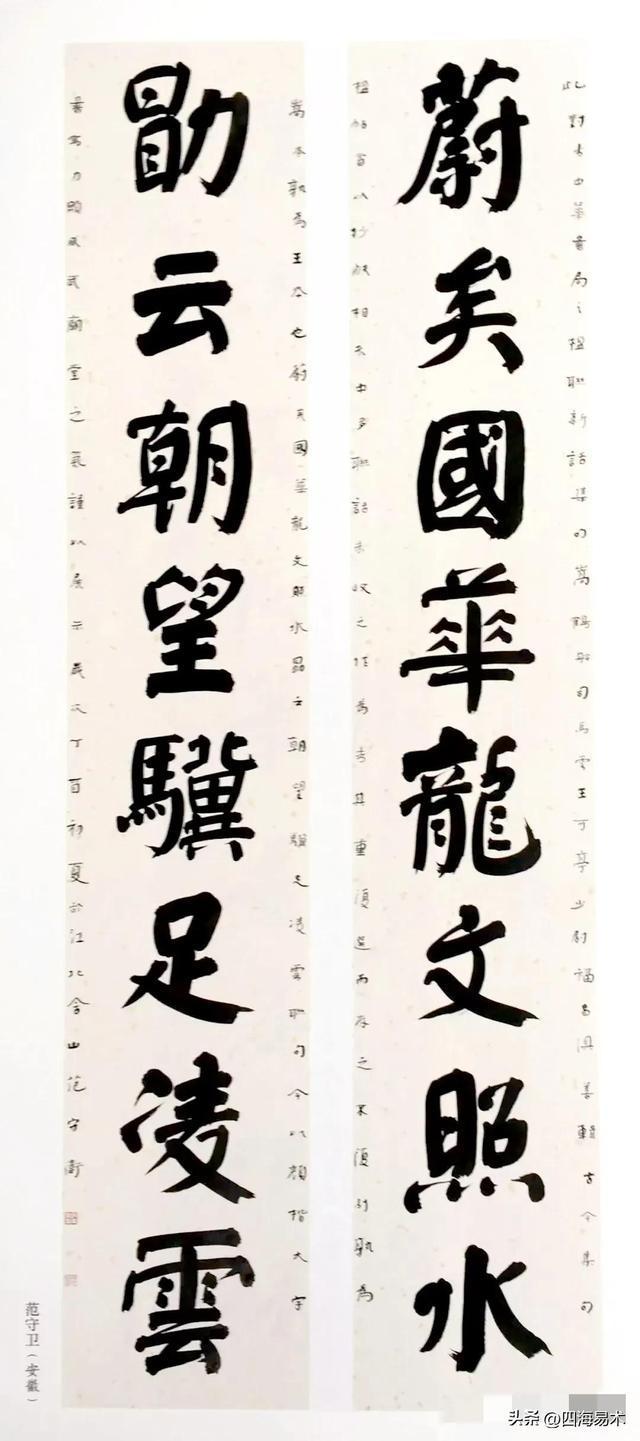 蔚矣國華龍文照水
勖云朝望驥足凌雲
此對出中華書局之楹聯新話集句嵩鶴船司馬雲王可亭少尉福昌俱善輯古今集句
楹帖曾以抄錄相示中多聯話未收之作為去其重復選而存之不復別孰為
嵩本孰為王本也蔚矣國華龍文照水勖云朝望驥足凌雲聯句今以顏楷大字
書寫力顯威武廟堂之氣謹以展示歲次丁酉初夏於江北含山范守衛
范守卫（安徽）
头条 @四海易木